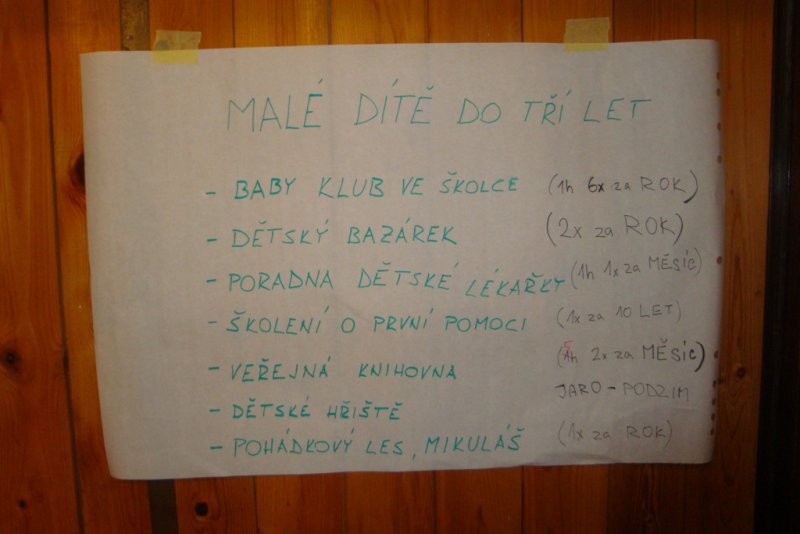 MALÉ DÍTĚ DO TŘÍ LET
- BABY KLUB VE ŠKOLCE (1h 6x za ROK)
- DĚTSKÝ BAZÁREK (2x za ROK)
- PORADNA DĚTSKÉ LÉKAŘKY (1h 1x za MĚSÍC)
- ŠKOLENÍ O PRVNÍ POMOCI (1x za 10 LET)
- VEŘEJNÁ KNIHOVNA (5h 2x za MĚSÍC)
- DĚTSKÉ HŘIŠTĚ JARO - PODZIM
- POHÁDKOVÝ LES, MIKULÁŠ (1x za ROK)